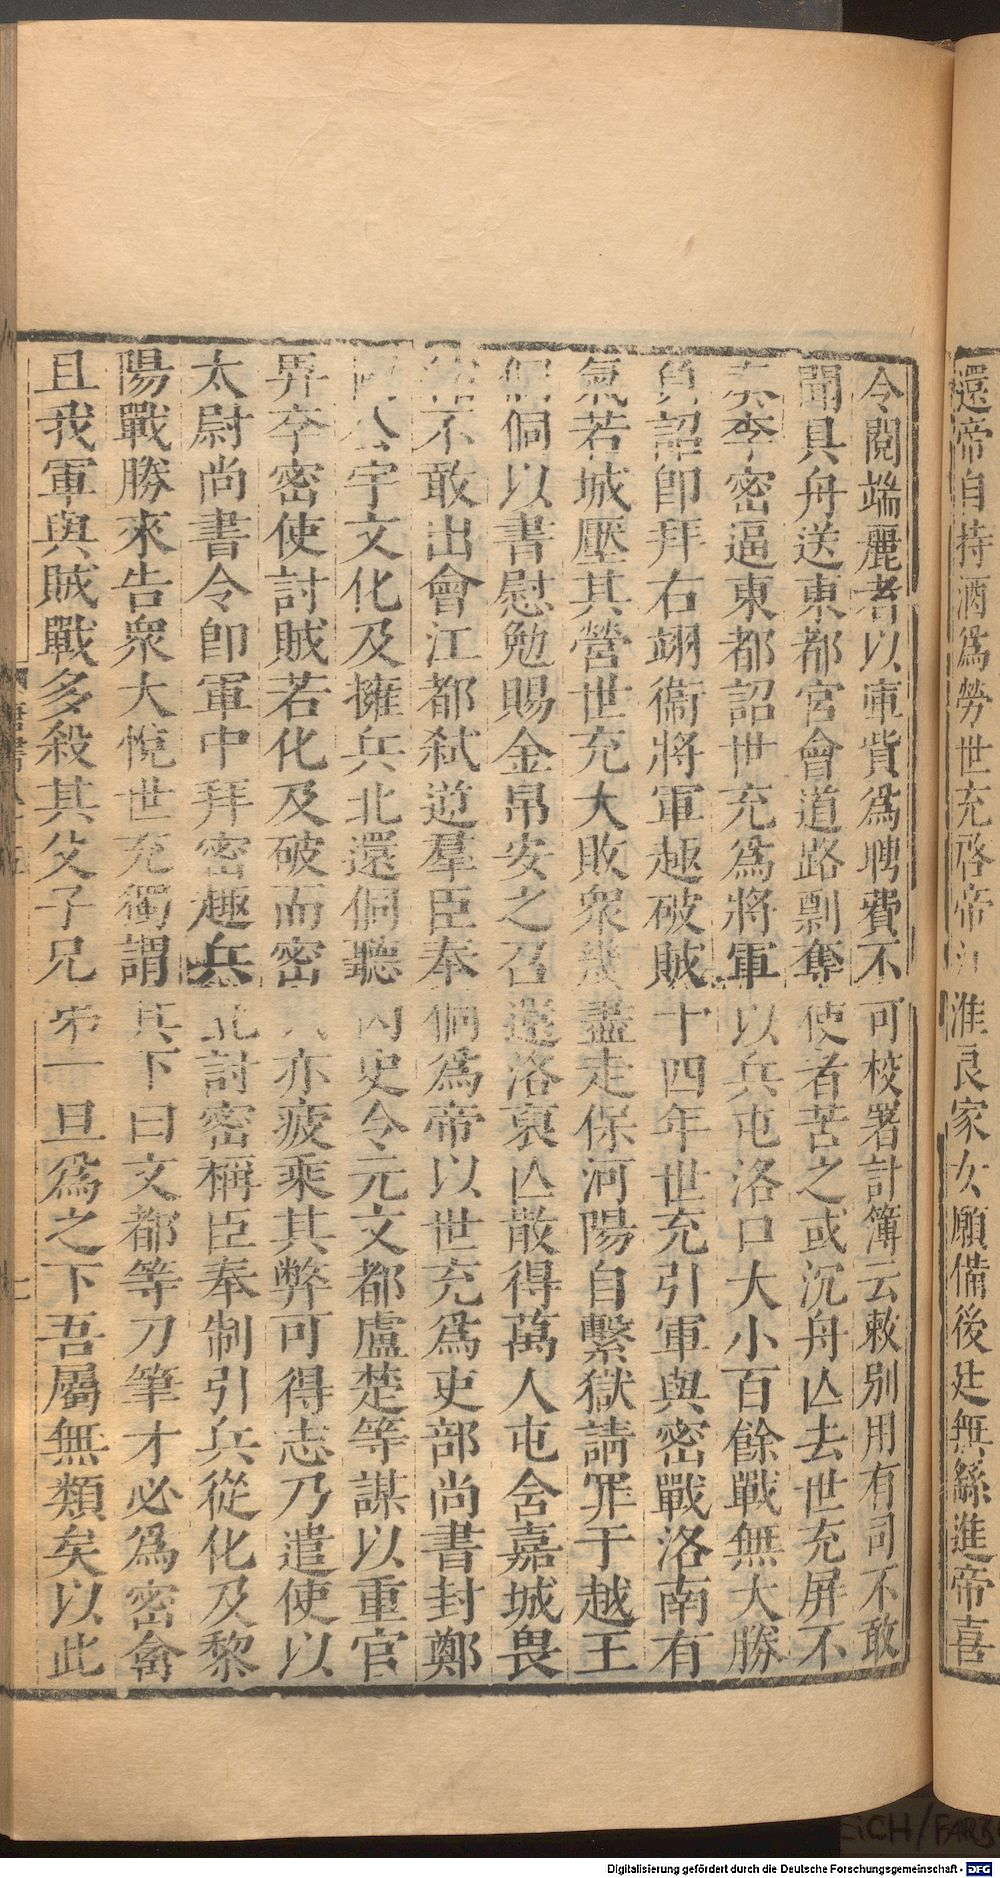 還帝自持酒爲勞世充啓帝江淮良家女願備後廷無繇進帝喜
令閱端麗者以庫貲爲聘費不可校署計簿云敕别用有司不敢
聞具舟送東都宮會道路剽奪使者苦之或沉舟亾去世充屏不
奏李密逼東都詔世充爲將軍以兵屯洛口大小百餘戰無大勝
負詔卽拜右翊衞將軍趣破賊十四年世充引軍與密戰洛南有
氣若城壓其營世充大敗衆幾盡走保河陽自繫獄請罪于越王
侗侗以書慰勉賜金帛安之召還洛裒亾散得萬人屯含嘉城畏
不敢出會江都弑逆羣臣奉侗爲帝以世充爲吏部尚書封鄭
國公宇文化及擁兵北還侗聽内史令元文都盧楚等謀以重官
畀李密使討賊若化及破而密亦疲乘其弊可得志乃遣使以
太尉尚書令卽軍中拜密趣兵北討密稱臣奉制引兵從化及黎
陽戰勝來告衆大悅世充獨謂其下曰文都等刀筆才必爲密禽
且我軍與賊戰多殺其父子兄弟一旦爲之下吾屬無類矣以此
唐書
Digitalisierung gefördert durch die Deutsche Forschungsgemeinschaft - DFG